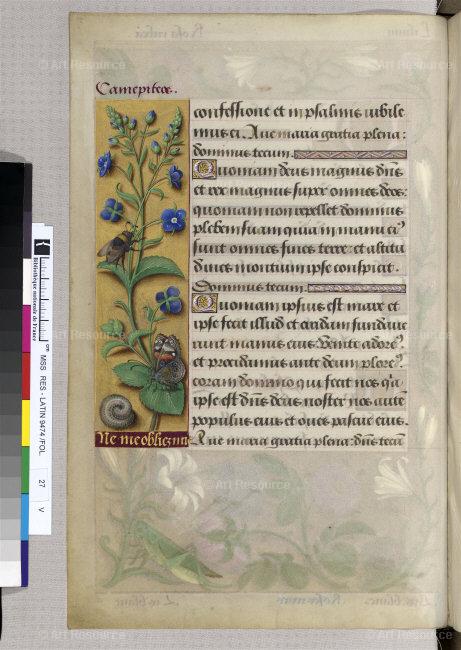 Camepiteos.
confessione et in psalmis iubile
mus ei. Aue maria gratia plena:
dominus tecum.
Quoniam deus magnus dns
et rex magnus super omnes deos:
quoniam non repellet dominus
plebem suam quia in manu ei9
sunt omnes fines terre: et altitu
dines montium ipse conspicit.
Dominus tecum.
Quoniam ipsius est mare et
ipse fecit illud et aridam fundaue
runt manus eius. Venite adore9
et procidamus ante deum plore9
coram domino qui fecit nos q'a
ipse est dns deus noster nos aute
populus eius et oues pascue eius.
Aue maria gratia plena: dns tecu
Ne me obliez mie
Bibliothèque nationale de France
MSS RES - LATIN 9474 /FOL
27
V
© Art Resource